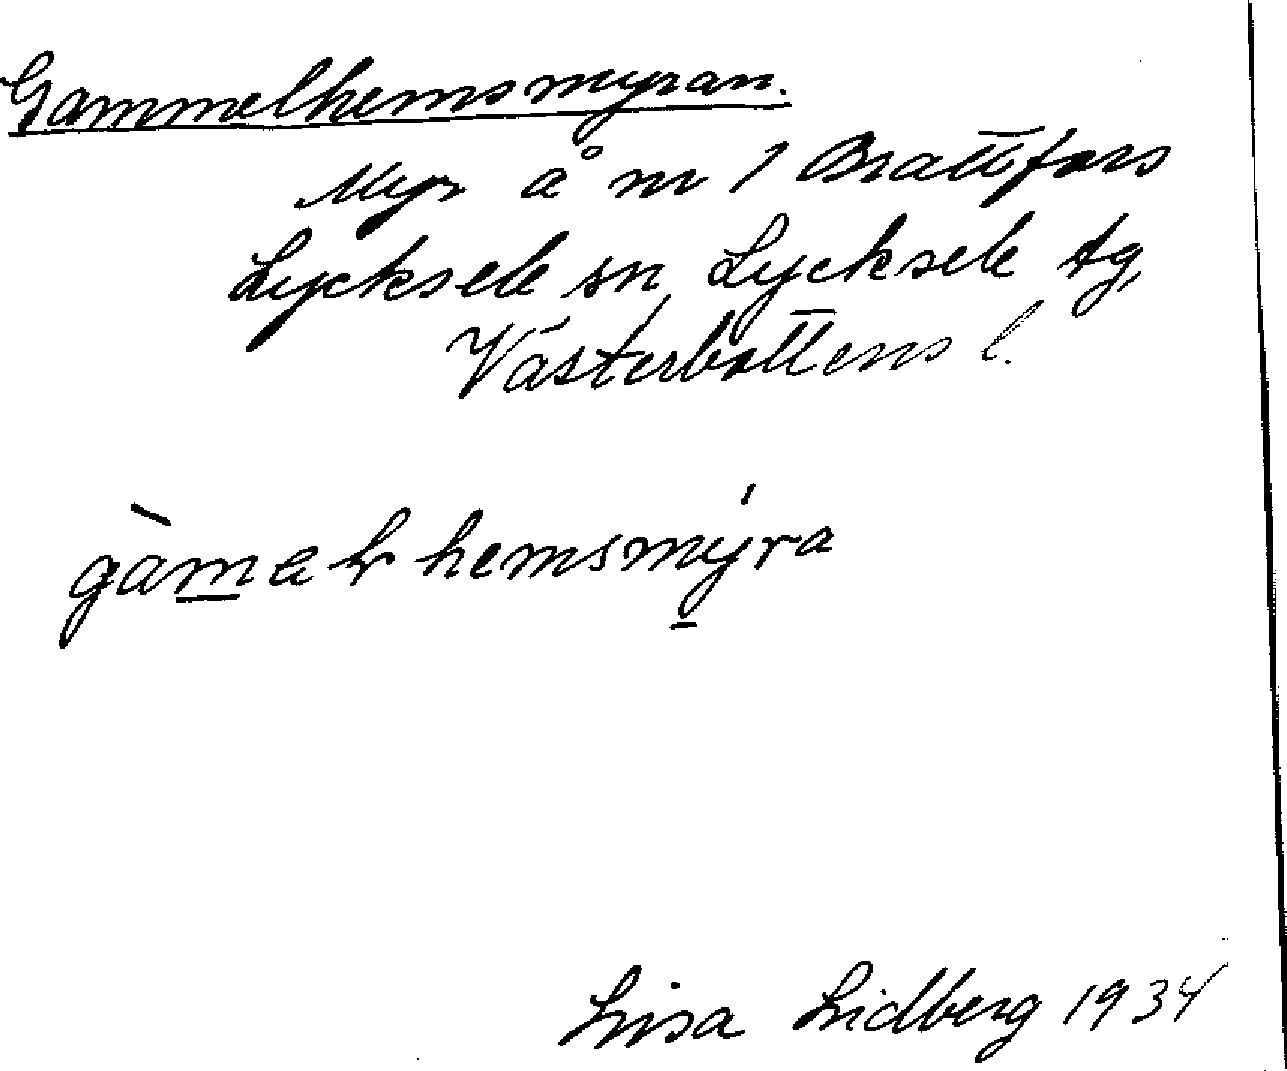 Gammelhemsmyran.
Myr å nr 1 Brattfors
Lycksele sn, Lycksele tg,
Västerbottens l.
gàmaɫhemsmýra
Lisa Lidberg 1934